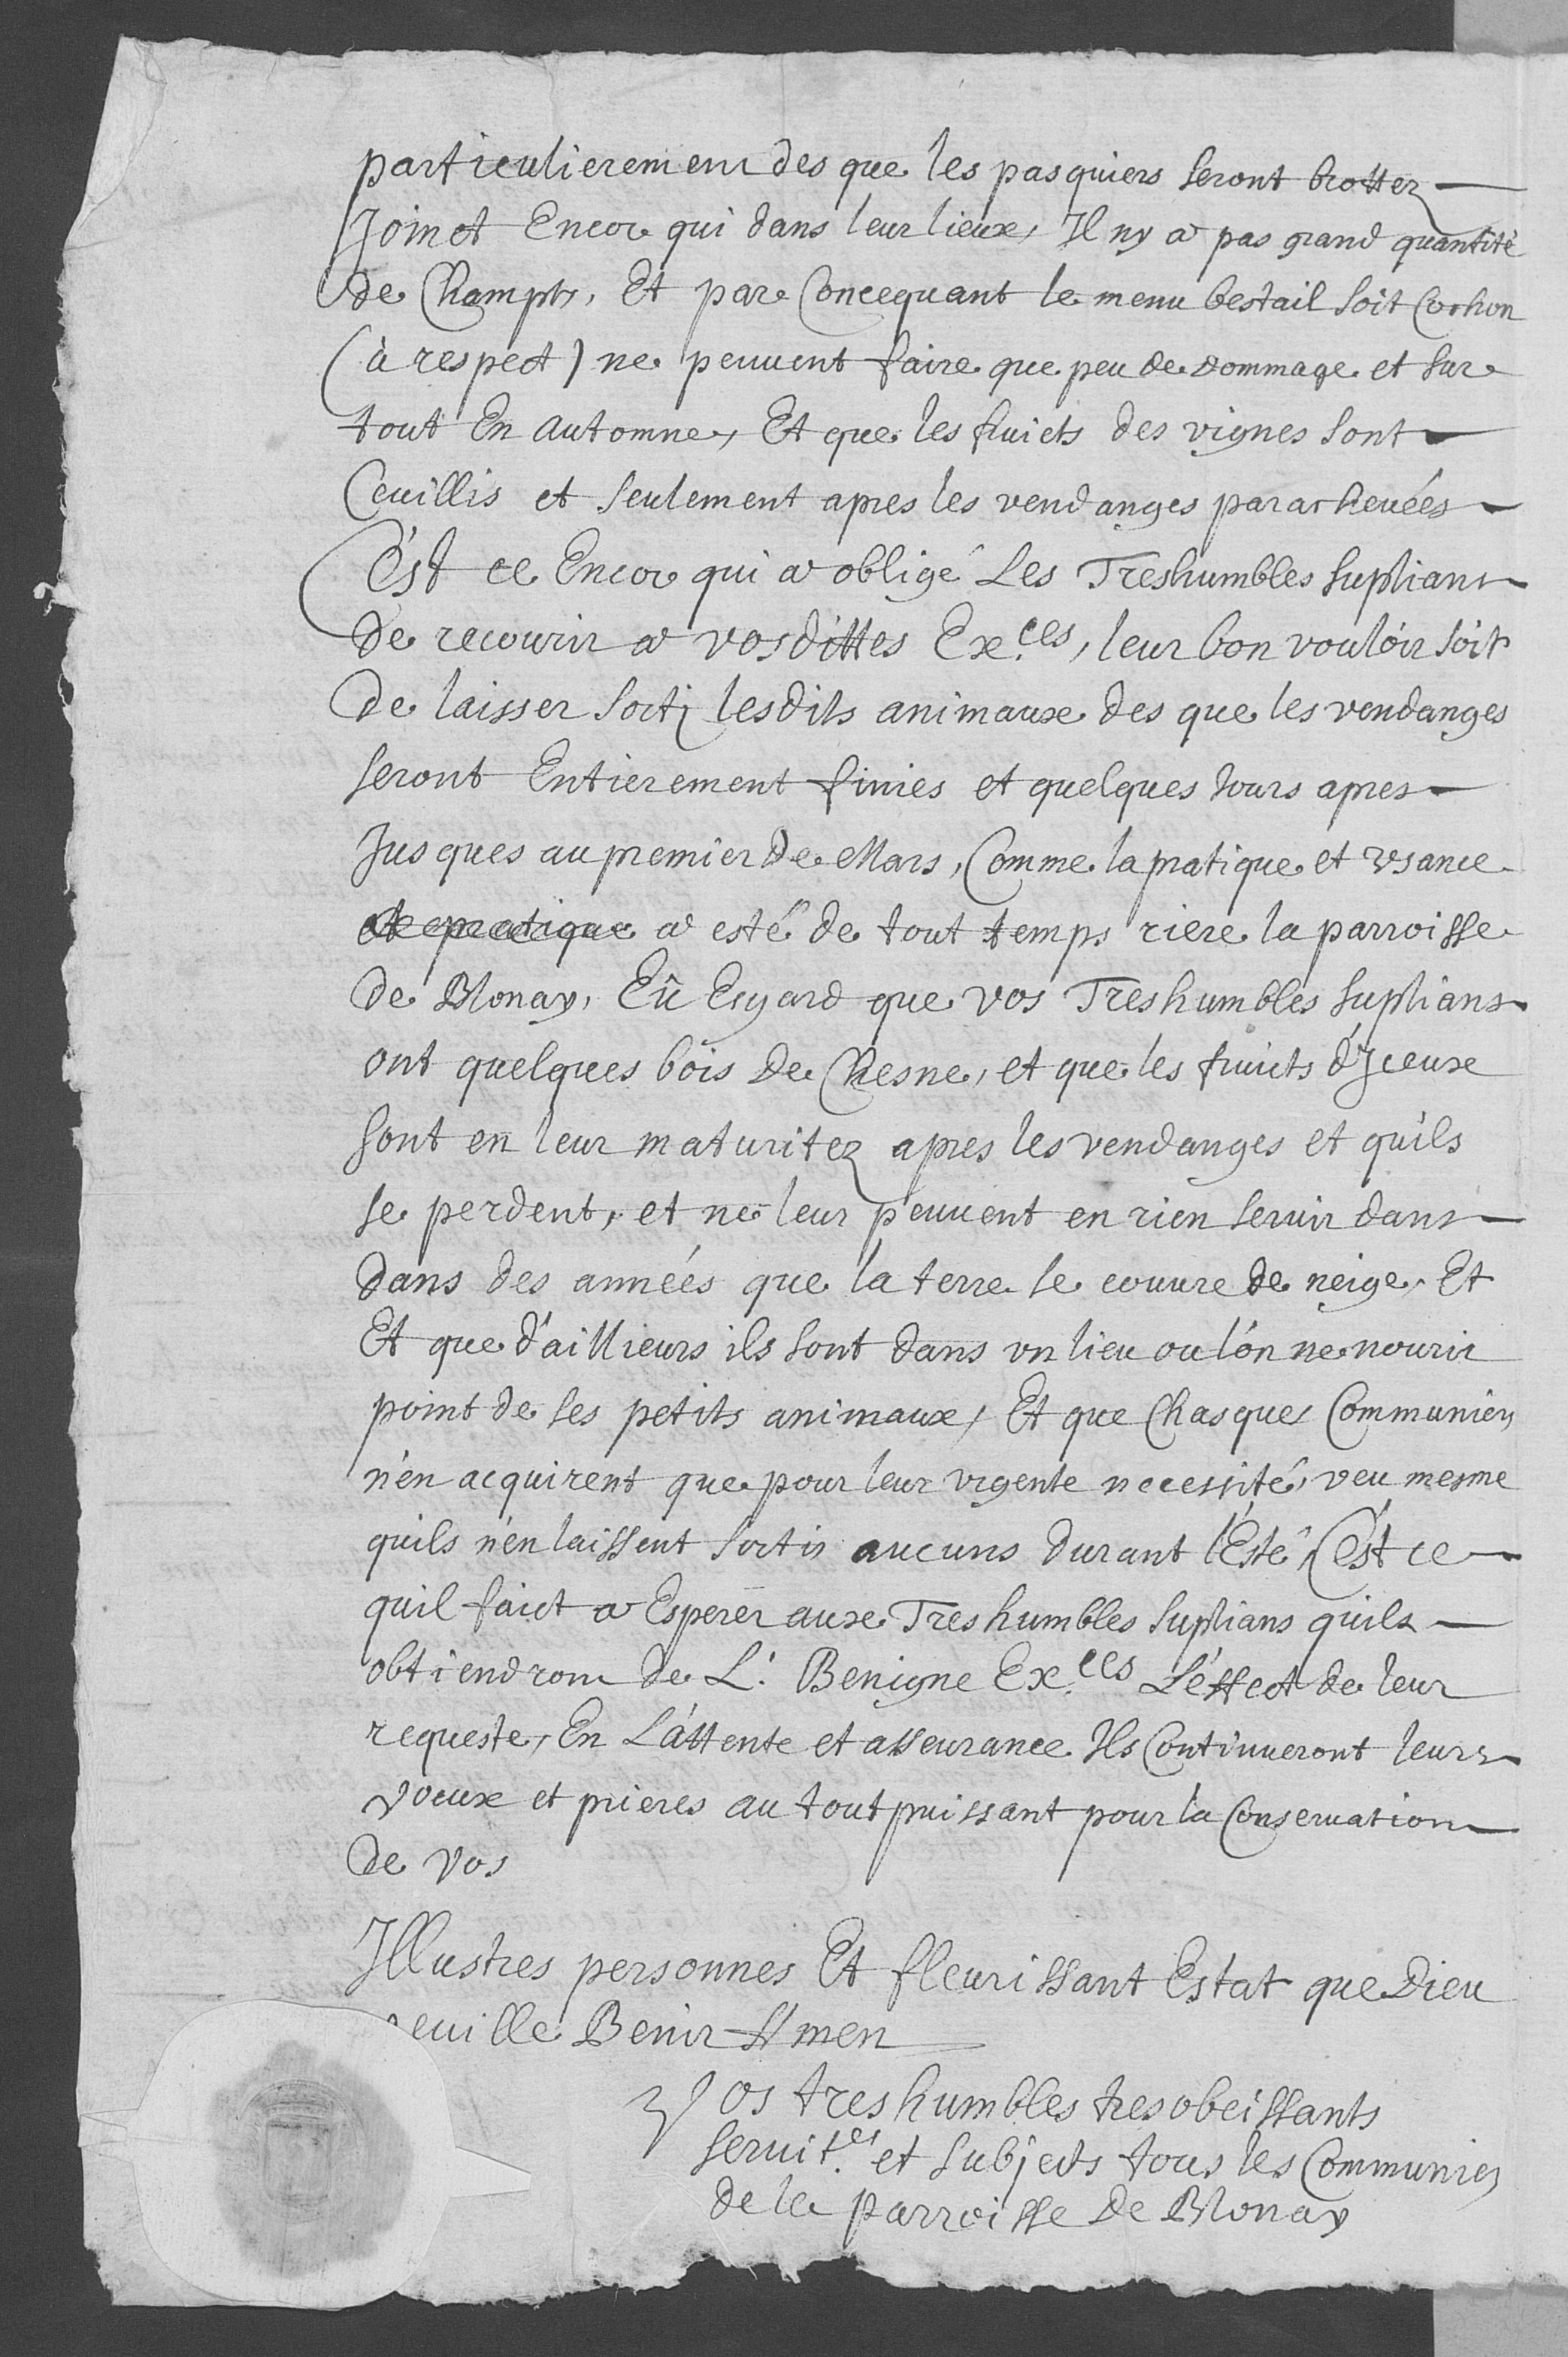 particulierement des que les pasquiers seront brottez
Joinct Encor qui dans leur lieux, Il ny a pas grand quantité
de Champts, Et par Concequant le menu bestail soit Cochon
(à respect) ne peuuent faire que peu de dommage et sur
tout En automne, Et que les fruicts des vignes sont
Ceuillis et seulement apres les vendanges paracheuées
C'ést ce Encor qui a obligé Les Treshumbles Suplians
de recourir a vosdittes Ex.ces, leur bon vouloir soit
de laisser sorti lesdits animaux des que les vendanges
seront Entierement finies et quelques Jours apres
Jusques au premier de Mars, Comme la pratique et vsance
et pratique a esté de tout temps riere la parroisse
de Blonay, Eû Esgard que vos Treshumbles Suplians
ont quelques bois de Chesne, et que les fruicts d'Jceux
sont en leur maturitez apres les vendanges et qu'ils
se perdent, et ne leur peuuent en rien seruir dans
dans des années que la terre se couure de neige, Et
Et que d'aillieurs ils sont dans vn lieu ou lón ne nourir
point de ses petits animaux, Et que Chasques Communiers
n'én acquirent que pour leur vrgente necessité, veu mesme
quils n'én laissent sortir aucuns durant l'Esté, C'ést ce
quil faict a Esperer aux Treshumbles Suplians quils
obtiendront de L. Benigne Ex.ces L'éffect de leur
requeste, En L'áttente et asseurance Ils Continueront leurs
voeux et prieres au tout puissant pour la Conseruation
de Vos
Illustres personnes Et fleurissant Estat que Dieu
veuille Benir Amen
Vos tres humbles tres obeissants
seruit.rs et subjects tous les Communiers
de la parroisse de Blonay